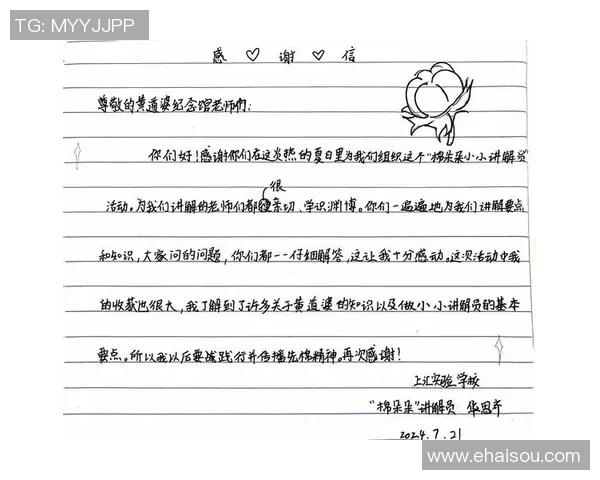 TG: MYYJJPP
感♡谢♡信
尊敬的黄道婆纪念馆老师们:
你们好!感谢你们在这炎热的夏日里为我们组织这个“棉朵朵小小讲解员”
很
活动。为我们讲解的老师们都亲切、学识渊博。你们一遍遍地为我们讲解要点
和知识,大家问的问题,你们都一一仔细解答,这让我十分感动。这次活动中我
的收获也很大,我了解到了许多关于黄道婆的知识以及做小小讲解员的基本
要点。所以我以后要践行并传播先棉精神。再次感谢!
上汇实验学校
“棉朵朵”讲解员 华思齐
2024.7.21
www.ehaisou.com